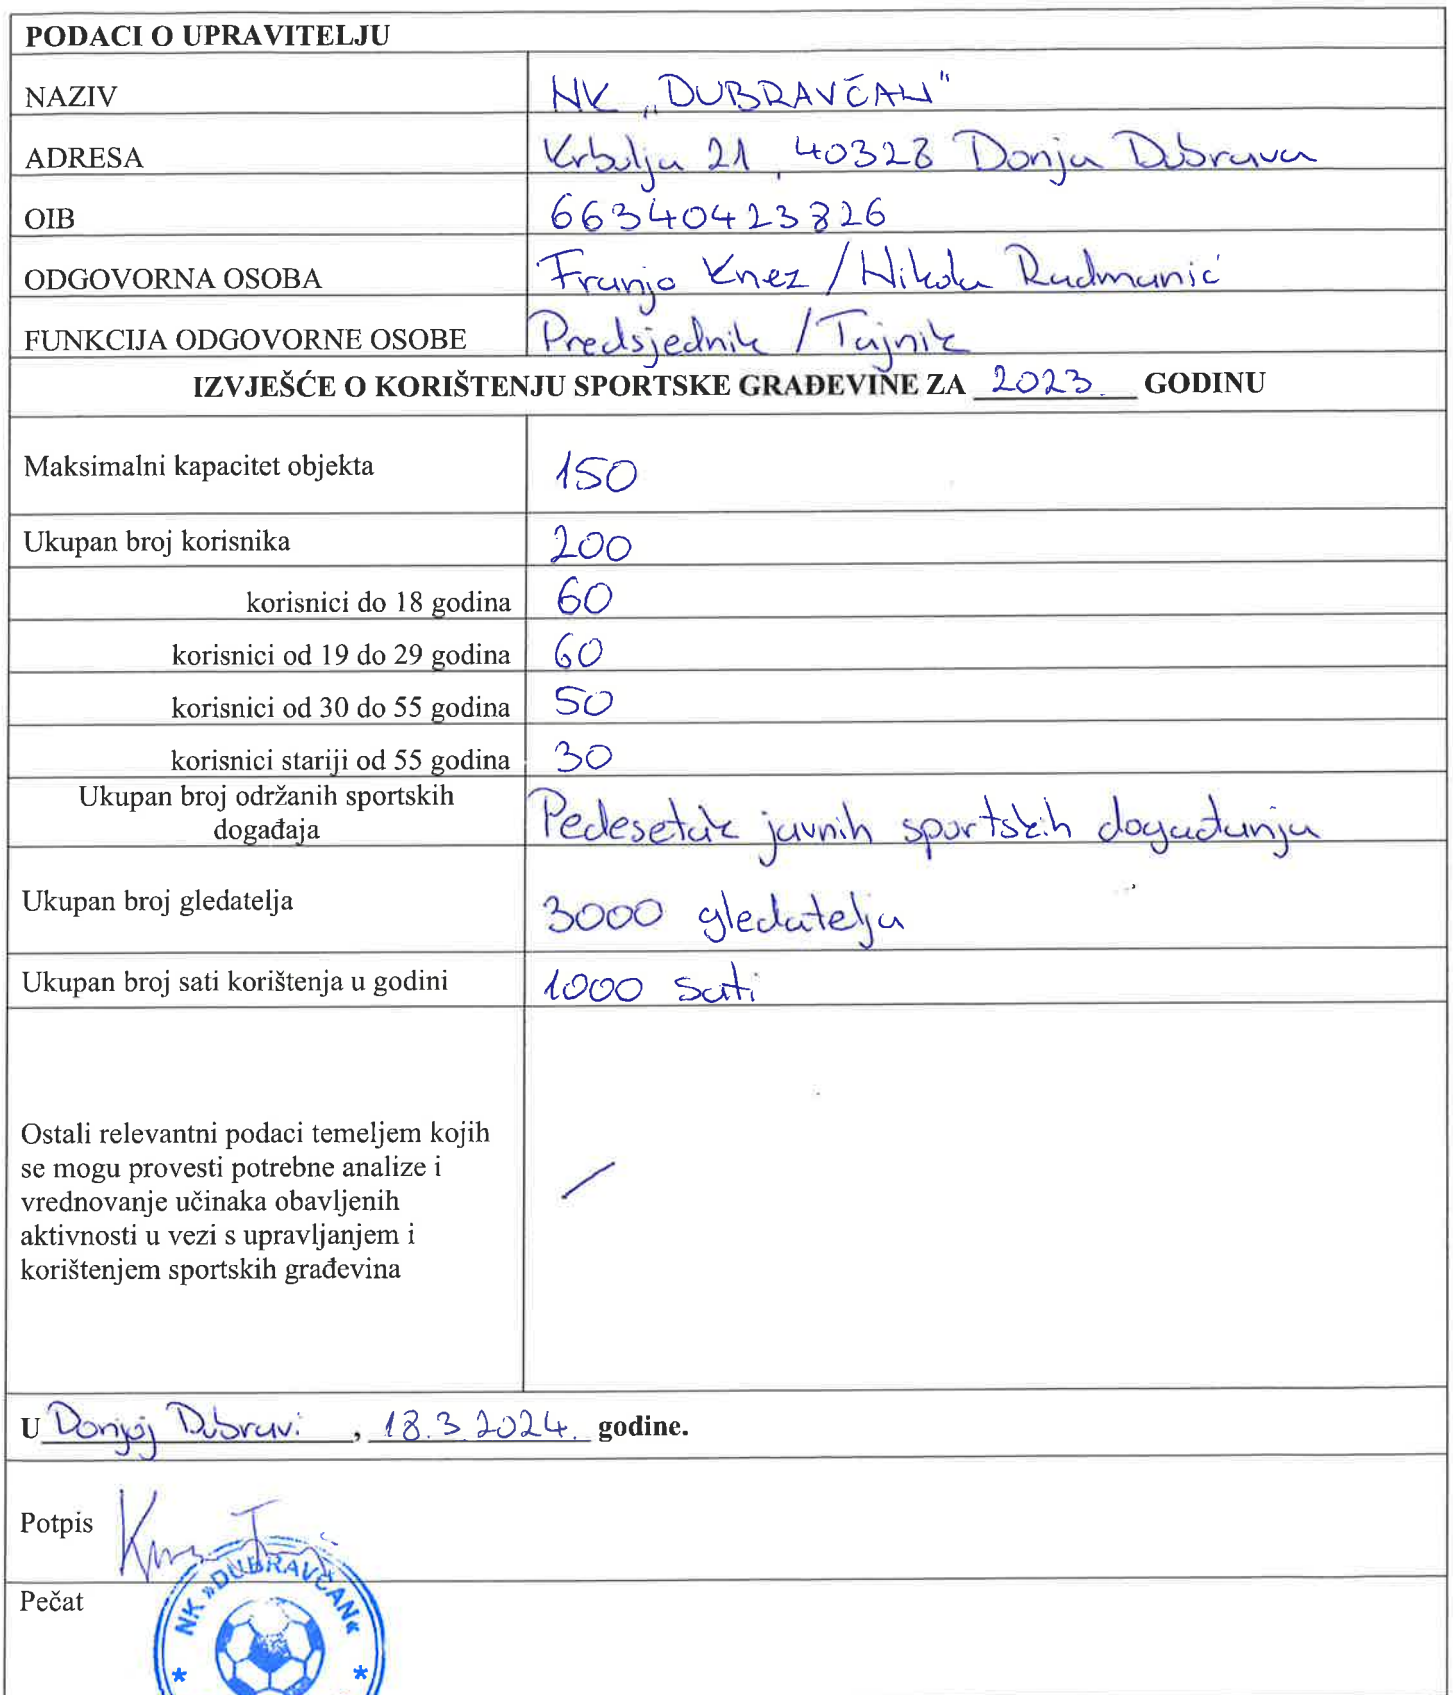 PODACI O UPRAVITELJU
NAZIV NK „DUBRAVČAN"
ADRESA Krbulja 21, 40328 Donja Dubrava
OIB 66340423826
ODGOVORNA OSOBA Franjo Knez / Nikola Radmanić
FUNKCIJA ODGOVORNE OSOBE Predsjednik / Tajnik
IZVJEŠĆE O KORIŠTENJU SPORTSKE GRAĐEVINE ZA 2023. GODINU
Maksimalni kapacitet objekta 150
Ukupan broj korisnika 200
korisnici do 18 godina 60
korisnici od 19 do 29 godina 60
korisnici od 30 do 55 godina 50
korisnici stariji od 55 godina 30
Ukupan broj održanih sportskih
događaja Pedesetak javnih sportskih događanja
Ukupan broj gledatelja 3000 gledatelja
Ukupan broj sati korištenja u godini 1000 sati
Ostali relevantni podaci temeljem kojih
se mogu provesti potrebne analize i
vrednovanje učinaka obavljenih
aktivnosti u vezi s upravljanjem i
korištenjem sportskih građevina /
U Donjoj Dubravi, 18.3.2024. godine.
Potpis
Pečat
NK »DUBRAVČAN«